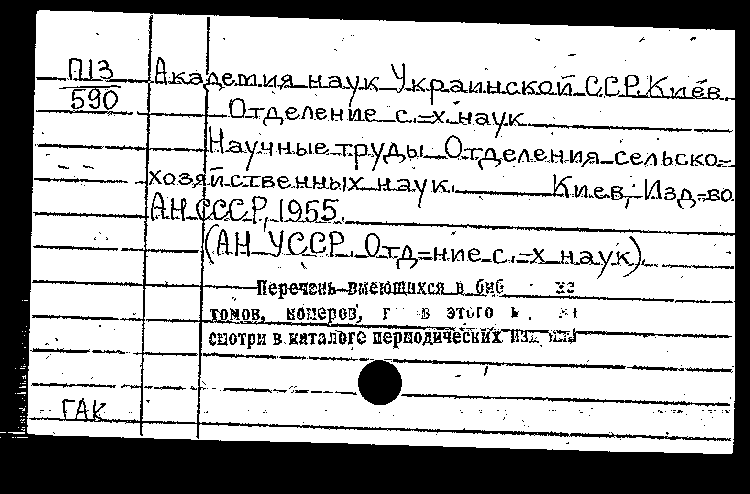 П13 Академия наук Украинской ССР. Киев.
590 Отделение с.-х. наук
Научные труды Отделения сельско-
хозяйственных наук. Киев, Изд-во
АН СССР, 1955.
(АН УССР. Отд-ние с.-х. наук).
Перечень имеющихся в
томов, номеров, в этого
смотри в каталоге периодических
ГАК